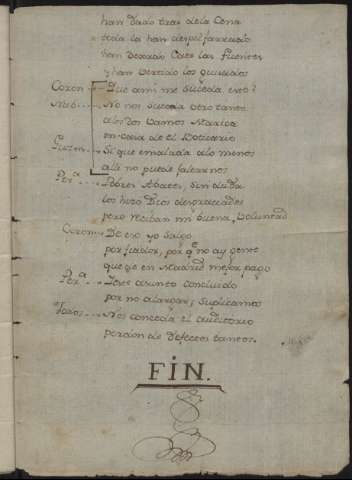 han dado tras de la Cena
toda la han despilfarrado
han dexado Caer las fuentes
y han vertido los guisados
Coron... Que a mi me suceda esto?
Nis... No nos suceda otro tanto
a los dos Vamos Marica
en casa de el Boticario
Guzm... Si que ensalada a lo menos
alli no puede faltarnos
Per.ª... Pobres Abates, sin duda
los hizo Dios desgraciados
pero reciban mi buena Voluntad
Coron... De eso yo salgo
por fiador, por q.e no ay gente
que en Madrid mejor pago
Per.ª... Y este asunto concluido
por no alargar, suplicamos
Todos... Nos conceda el auditorio
perdon de defectos tantos.
FIN.